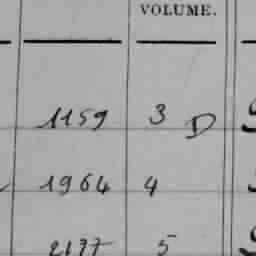 VOLUME.
1159 3 D
1964 4
2177 5